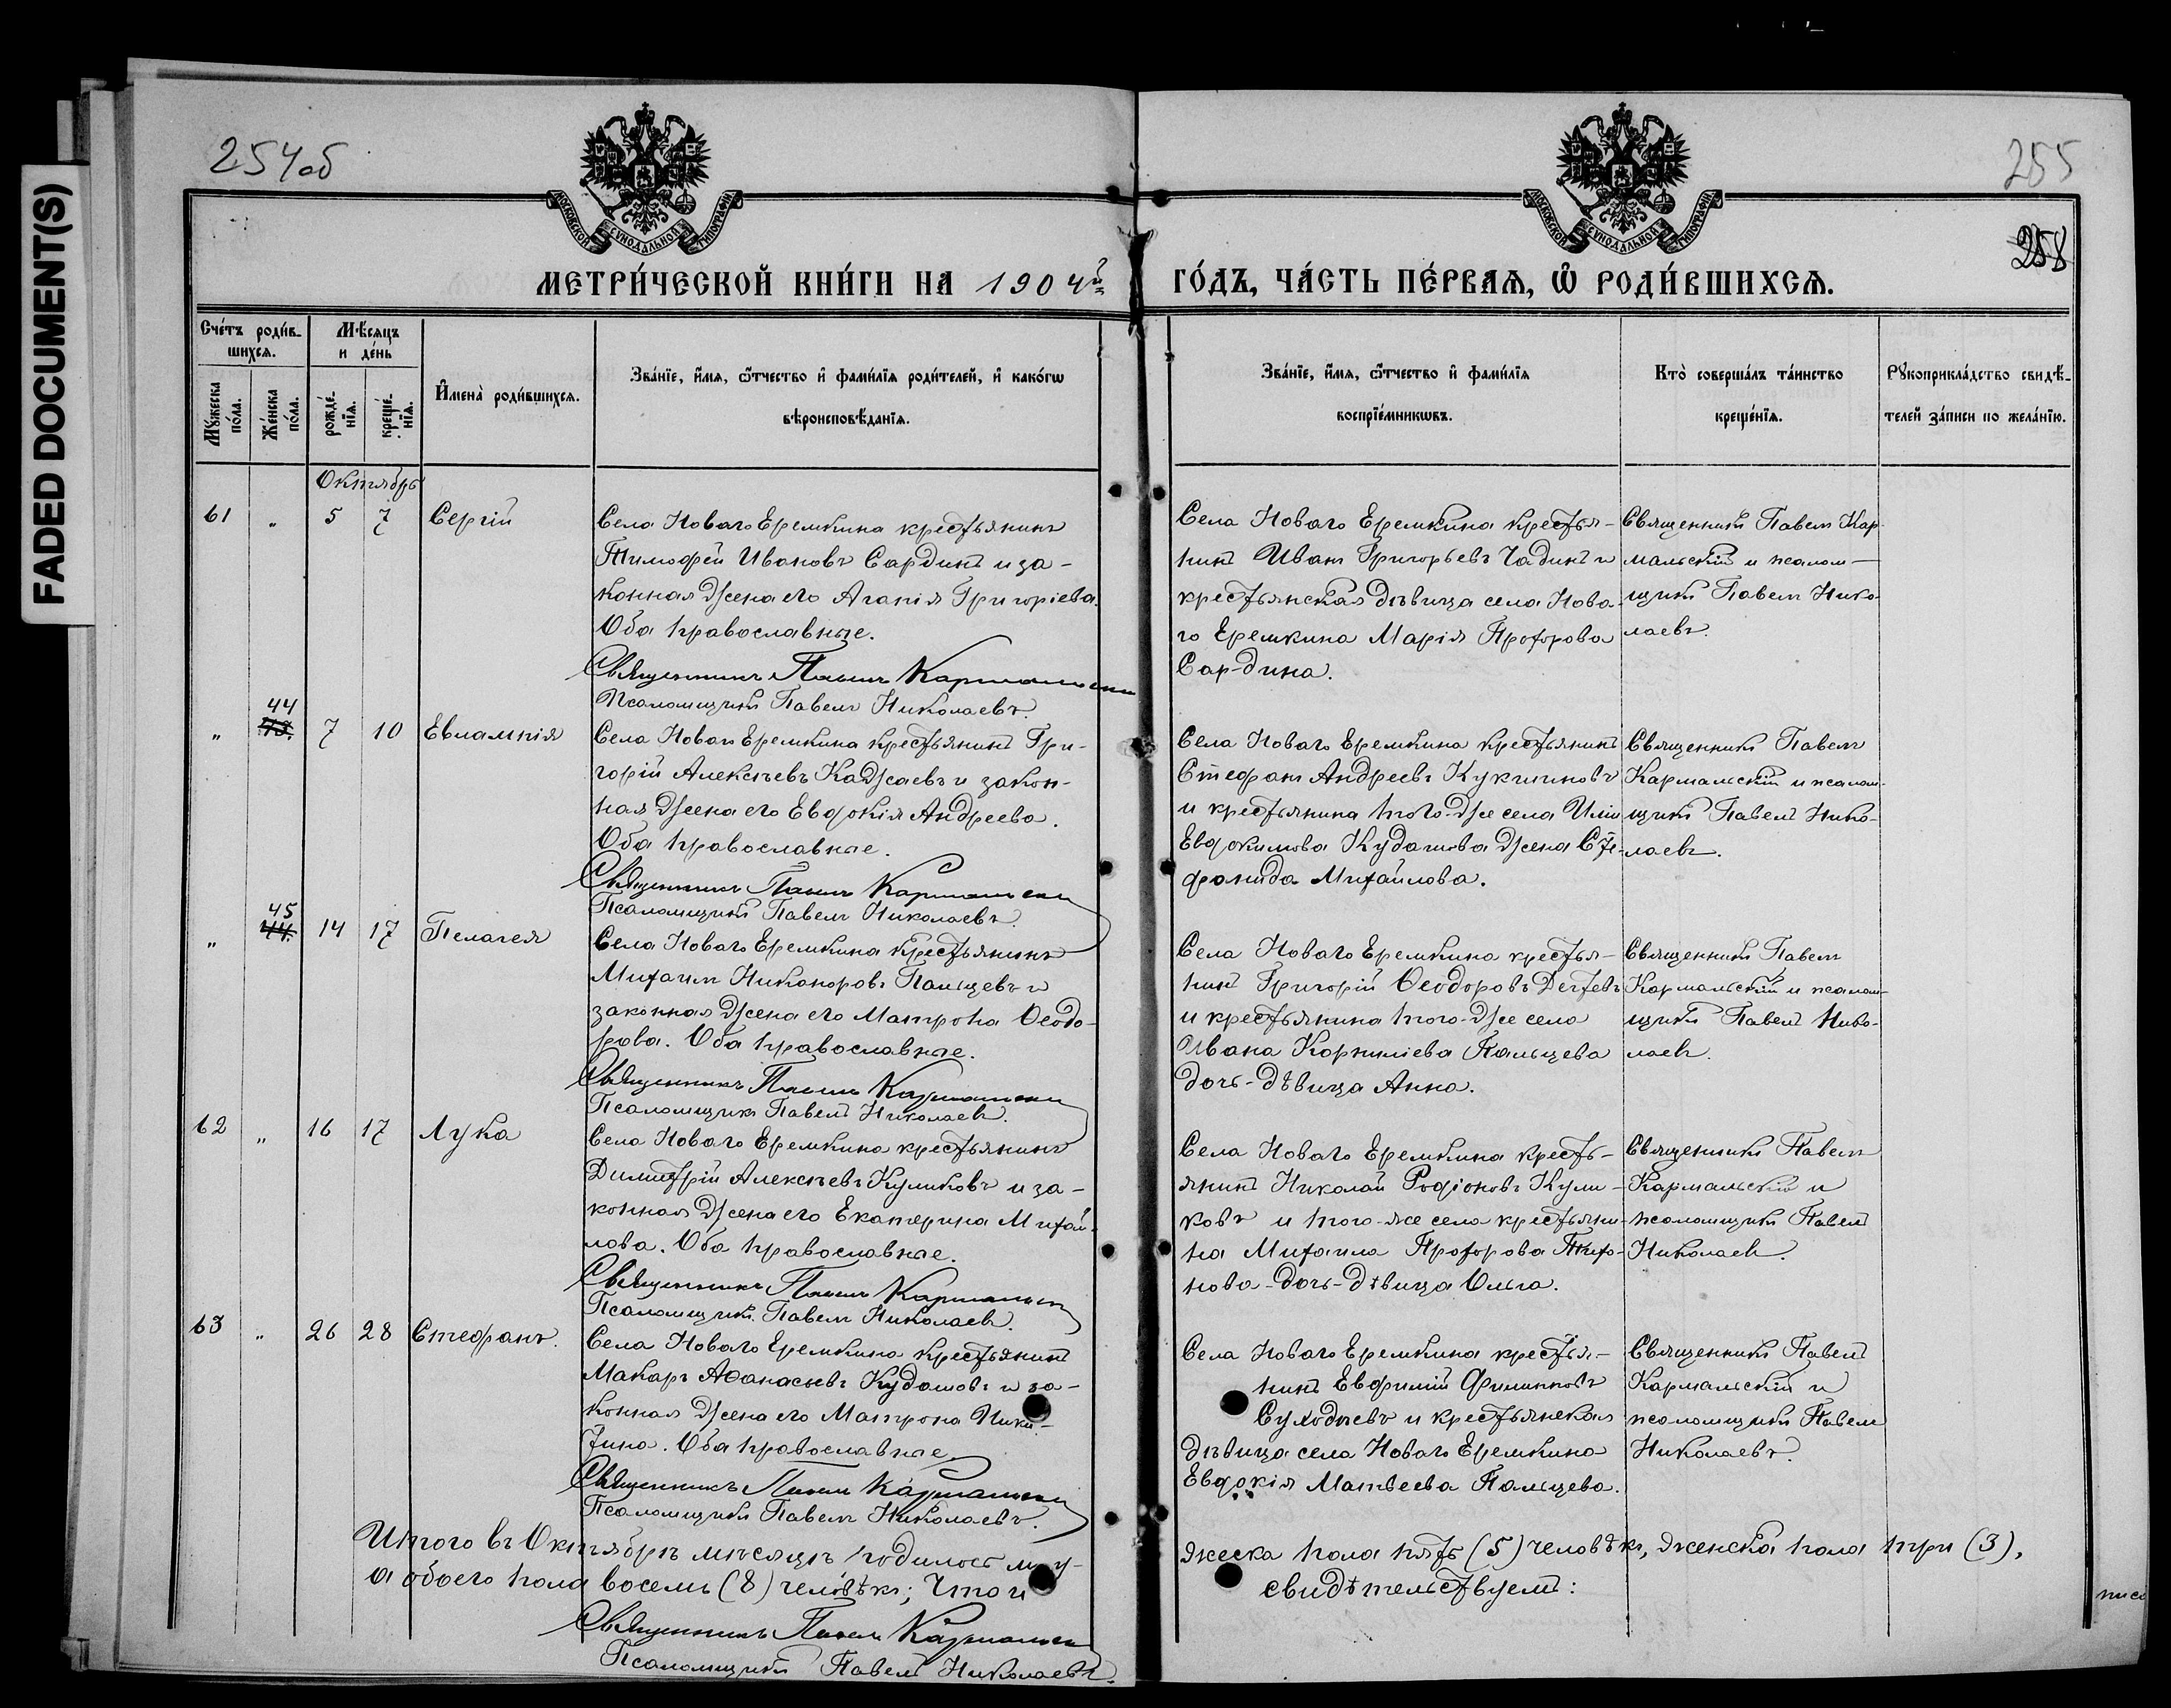 FADED DOCUMENT(S)
254об
255
258
МОСКОВСКОЙ СѴНОДАЛЬНОЙ ТИПОГРАФІИ
МОСКОВСКОЙ СѴНОДАЛЬНОЙ ТИПОГРАФІИ
МЕТРИ́ЧЕСКОЙ КНИ́ГИ НА 1904й ГО́ДЪ, ЧА́СТЬ ПЕ́РВАѦ, Ѿ РОДИ́ВШИХСѦ.
Сче́тъ роди́в-
шихсѧ.
Мꙋжеска по́ла.
Же́нска по́ла.
Мѣ́сяцъ
и де́нь
рожде́-
нїѧ.
креще́-
нїѧ.
И҆мена̀ роди́вшихсѧ.
Зва́нїе, и҆́мѧ, ѻ҆́тчество и҆ фами́лїѧ роди́телей, и҆ како́гѡ
вѣроисповѣ́данїѧ.
Зва́нїе, и҆́мѧ, ѻ҆́тчество и҆ фами́лїѧ
воспрїе́мникѡвъ.
Кто̀ соверша́лъ та́инство
креще́нїѧ.
Рꙋкоприкла́дство свидѣ́-
телей за́писи по жела́нїю.
Октябрь
61 " 5 7 Сергій
Села Новаго Еремкина крестьянинъ
Тимофей Ивановъ Сардинъ и за-
конная жена его Агапія Григоріева.
Оба православные.
Священникъ Павелъ Кармальскій
Псаломщикъ Павелъ Николаевъ.
Села Новаго Еремкина крестья-
нинъ Иванъ Григорьевъ Чадинъ и
крестьянская дѣвица села Нова-
го Еремкина Марія Прохорова
Сар-дина.
Священникъ Павелъ Кар-
мальскій и псалом-
щикъ Павелъ Нико-
лаевъ.
" 44 43. 7 10 Евлампія
Села Новаго Еремкина крестьянинъ Гри-
горій Алексѣевъ Каджаевъ и закон-
ная жена его Евдокія Андреева.
Оба православные.
Священникъ Павелъ Кармальскій
Псаломщикъ Павелъ Николаевъ.
Села Новаго Еремкина крестьянинъ
Стефанъ Андреевъ Кукшиновъ
и крестьянина того-же села Иліи
Евдокимова Кудашова жена Сте-
фанида Михайлова.
Священникъ Павелъ
Кармальскій и псалом-
щикъ Павелъ Нико-
лаевъ.
" 45 44. 14 17 Пелагея
Села Новаго Еремкина крестьянинъ
Михаилъ Никоноровъ Пальцевъ и
законная жена его Матрона Ѳеодо-
рова. Оба православные.
Священникъ Павелъ Кармальскій
Псаломщикъ Павелъ Николаевъ.
Села Новаго Еремкина крестья-
нинъ Григорій Ѳеодоровъ
и крестьянина того-же села
Ивана Корниліева Пальцева
дочь-дѣвица Анна.
Священникъ Павелъ
Кармальскій и псалом-
щикъ Павелъ Нико-
лаевъ.
62 " 16 17 Лука
Села Новаго Еремкина крестьянинъ
Димитрій Алексѣевъ Куликовъ и за-
конная жена его Екатерина Михай-
лова. Оба православные.
Священникъ Павелъ Кармальскій
Псаломщикъ Павелъ Николаевъ.
Села Новаго Еремкина кресть-
янинъ Николай Родіоновъ Кули-
ковъ и того-же села крестьяни-
на Михаила Прохорова Тихо-
нова-дочь-дѣвица Ольга.
Священникъ Павелъ
Кармальскій и
псаломщикъ Павелъ
Николаевъ.
63 " 26 28 Стефанъ.
Села Новаго Еремкина крестьянинъ
Макаръ Аѳанасьевъ Кудашовъ и за-
конная жена его Матрона Ники-
тина. Оба православные.
Священникъ Павелъ Кармальскій
Псаломщикъ Павелъ Николаевъ.
Села Новаго Еремкина крестья-
нинъ Евфимій Филипповъ
Суходоевъ и крестьянская
дѣвица села Новаго Еремкина
Евдокія Матвеева Пальцева.
Священникъ Павелъ
Кармальскій и
псаломщикъ Павелъ
Николаевъ.
Итого въ Октябрѣ мѣсяцѣ родилось му-
жеска пола пять (5) человѣкъ, женска пола три (3),
а обоего пола восемь (8) человѣкъ; что и
свидѣтельствуемъ:
Священникъ Павелъ Кармальскій
Псаломщикъ Павелъ Николаевъ.